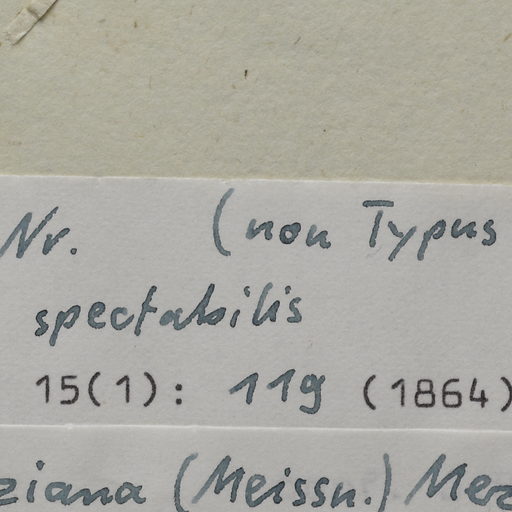 Nr. (non Typus
spectabilis
15(1): 119 (1864)
ziana (Meissn.) Mez